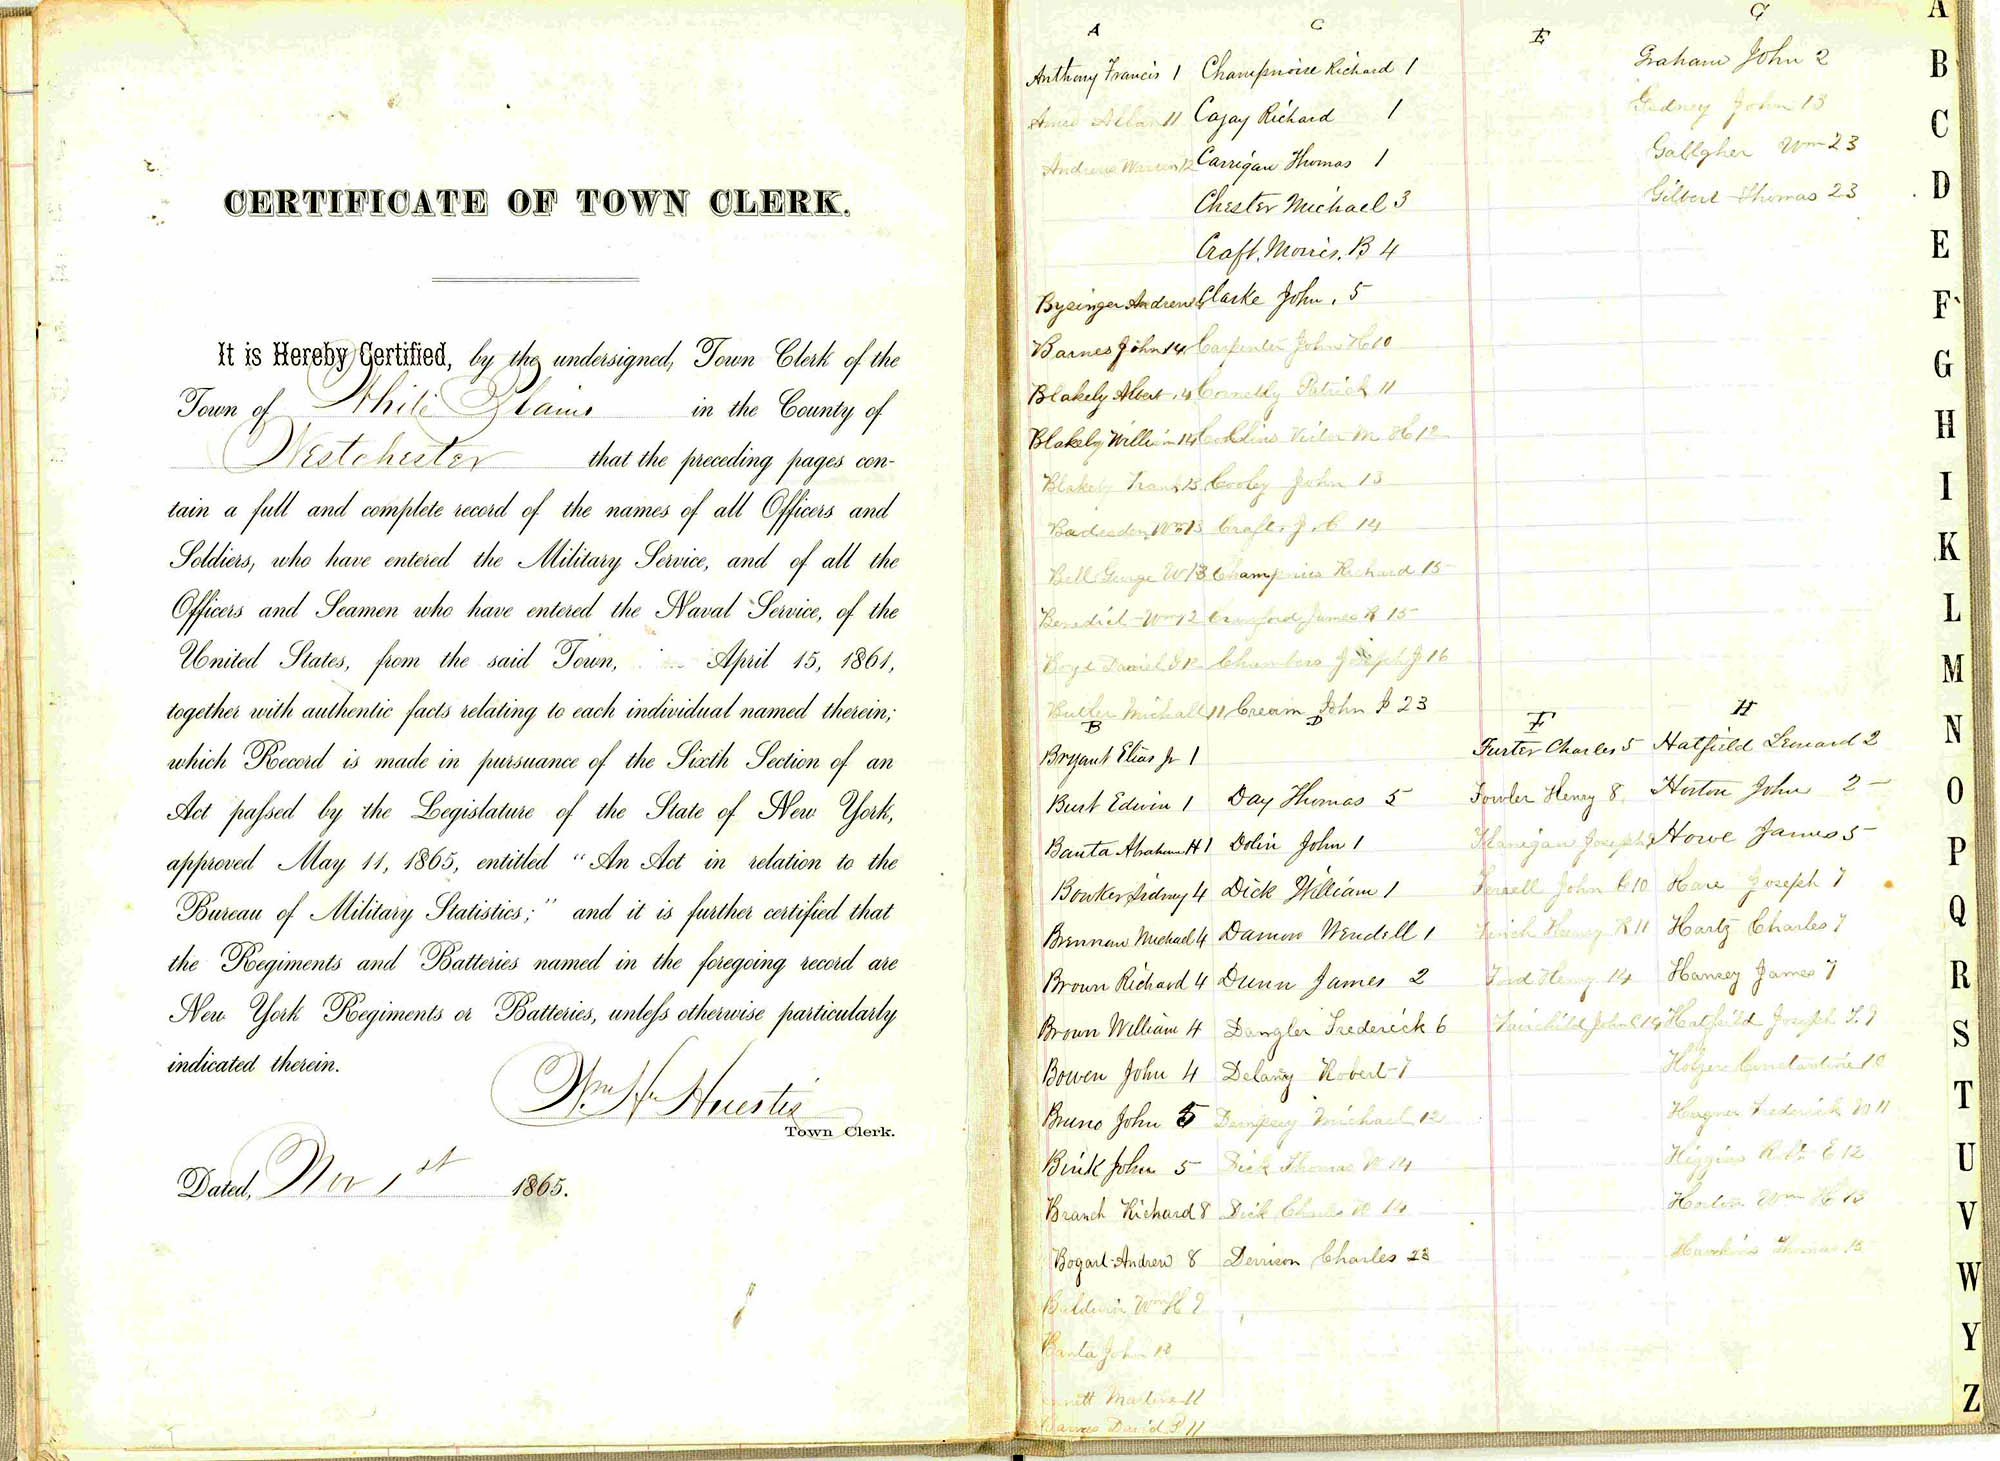 CERTIFICATE OF TOWN CLERK.
It is Hereby Certified, by the undersigned, Town Clerk of the
Town of White Plains in the County of
Westchester that the preceding pages con-
tain a full and complete record of the names of all Officers and
Soldiers, who have entered the Military Service, and of all the
Officers and Seamen who have entered the Naval Service, of the
United States, from the said Town, April 15, 1861,
together with authentic facts relating to each individual named therein;
which Record is made in pursuance of the Sixth Section of an
Act passed by the Legislature of the State of New York,
approved May 11, 1865, entitled "An Act in relation to the
Bureau of Military Statistics;" and it is further certified that
the Regiments and Batteries named in the foregoing record are
New York Regiments or Batteries, unless otherwise particularly
indicated therein.
Wm H Huestis
Town Clerk.
Dated, Nov 1st 1865.
A
Anthony Francis 1
11
Andrews Warren 12
Bysinger Andrew
Barnes John 14
Blakely Albert 14
Blakely William 14
Blakely Frank 13
Wm 13
Bell George W 13
Benedict Wm 12
Boyd Daniel
Butler Michall 11
B
Bryant Elias Jr 1
Burt Edwin 1
Banta Abraham H 1
Bowker Sidney 4
Brennan Michael 4
Brown Richard 4
Brown William 4
Bowen John 4
Bruno John 5
Bink John 5
Branch Richard 8
Bogart Andrew 8
Baldwin Wm H 9
Banta John 10
11
Barnes David 11
C
Champnoise Richard 1
Cagay Richard 1
Carrigan Thomas 1
Chester Michael 3
Craft, Morris, B 4
Clarke John, 5
Carpenter John H 10
Connelly Patrick 11
Collins Victor M 12
Cooley John 13
Craft, J. C 14
Champnies Richard 15
Crawford James R 15
Chambers Joseph J 16
Cream John J 23
D
Day Thomas 5
Dolin John 1
Dick William 1
Damon Wendell 1
Dunn James 2
Dangler Frederick 6
Delany Robert 7
Dempsey Michael 12
Dick Thomas W 14
Dick Charles W 14
Derrison Charles 23
E
F
Furter Charles 5
Fowler Henry 8
Flanigan Joseph 9
Ferrell John C 10
Finch Henry R 11
Ford Henry 14
Fairchild John C 14
G
Graham John 2
Gedney John 13
Gallgher Wm 23
Gilbert Thomas 23
H
Hatfield Lenard 2
Horton John 2
Howe James 5
Hare Joseph 7
Hartz Charles 7
Hansey James 7
Hatfield Joseph T. 9
Holzer Constantine 10
Hagner Frederick W 11
Higgins Robt E 12
Horton Wm H 13
Hawkins Thomas 15
A
B
C
D
E
F
G
H
I
K
L
M
N
O
P
Q
R
S
T
U
V
W
Y
Z